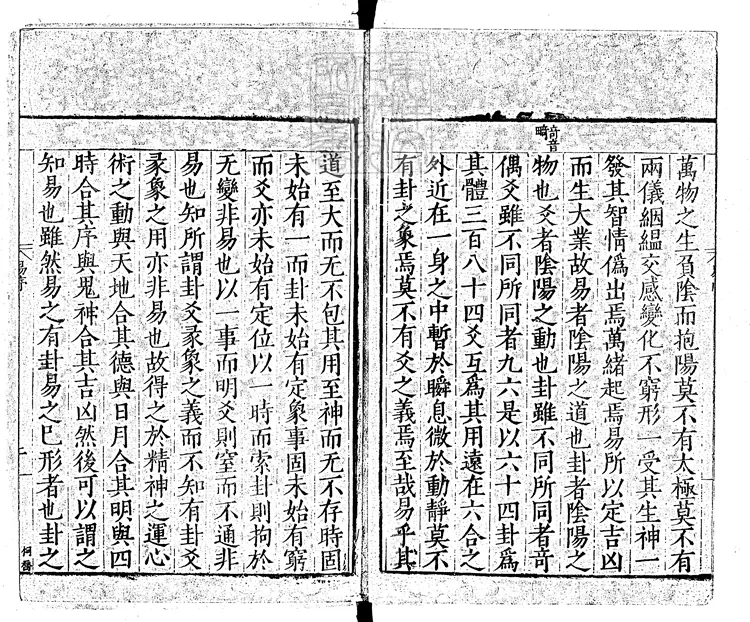 萬物之生負陰而抱陽莫不有太極莫不有
兩儀絪縕交感變化不窮形一受其生神一
發其智情僞出焉萬緒起焉易所以定吉凶
而生大業故易者陰陽之道也卦者陰陽之
物也爻者陰陽之動也卦雖不同所同者竒
竒音
畸
偶爻雖不同所同者九六是以六十四卦爲
其體三百八十四爻互爲其用遠在六合之
外近在一身之中暫於瞬息微於動靜莫不
有卦之象焉莫不有爻之義焉至哉易乎其
道至大而无不包其用至神而无不存時固
未始有一而卦未始有定象事固未始有窮
而爻亦未始有定位以一時而索卦則拘於
无變非易也以一事而明爻則窒而不通非
易也知所謂卦爻彖象之義而不知有卦爻
彖象之用亦非易也故得之於精神之運心
術之動與天地合其德與日月合其明與四
時合其序與鬼神合其吉凶然後可以謂之
知易也雖然易之有卦易之已形者也卦之
易序